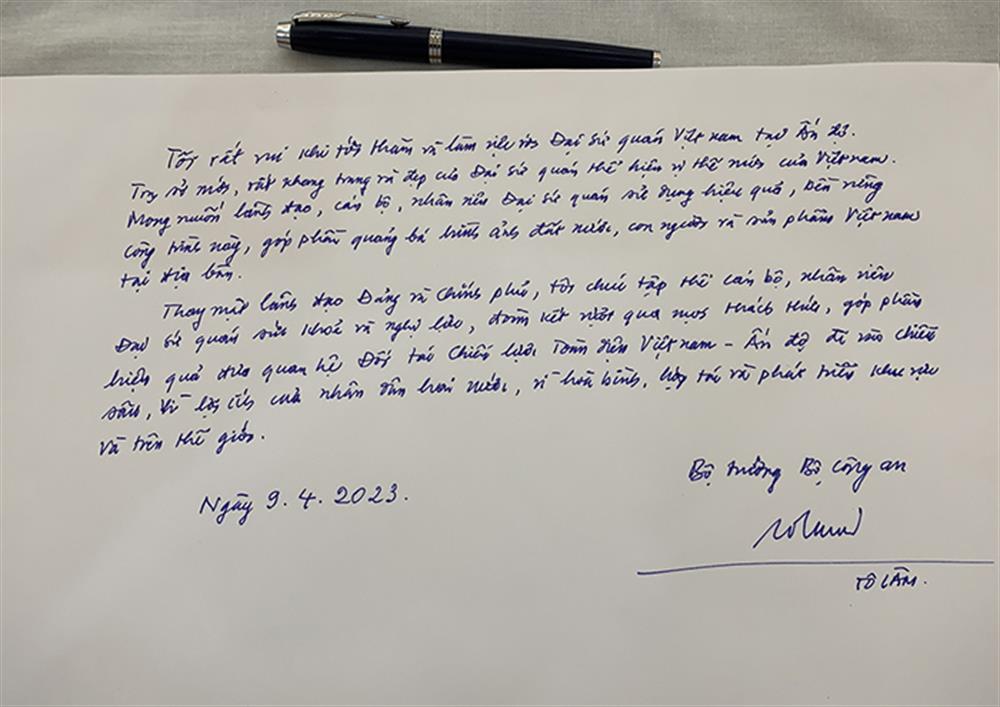 Tôi rất vui khi tới thăm và làm việc với Đại sứ quán Việt nam tại Ấn độ.
Trụ sở mới, rất khang trang và đẹp của Đại sứ quán thể hiện vị thế mới của Việt nam.
Mong muốn lãnh đạo, cán bộ, nhân viên Đại sứ quán sử dụng hiệu quả, bền vững
công trình này, góp phần quảng bá hình ảnh đất nước, con người và sản phẩm Việt nam
tại địa bàn.
Thay mặt lãnh đạo Đảng và Chính phủ, tôi chúc tập thể cán bộ, nhân viên
Đại sứ quán sức khoẻ và nghị lực, đoàn kết vượt qua mọi thách thức, góp phần
hiệu quả đưa quan hệ Đối tác Chiến lược Toàn diện Việt nam - Ấn độ đi vào chiều
sâu, vì lợi ích của nhân dân hai nước, vì hoà bình, hợp tác và phát triển khu vực
và trên thế giới.
Ngày 9.4.2023.
Bộ trưởng Bộ Công an
TÔ LÂM.